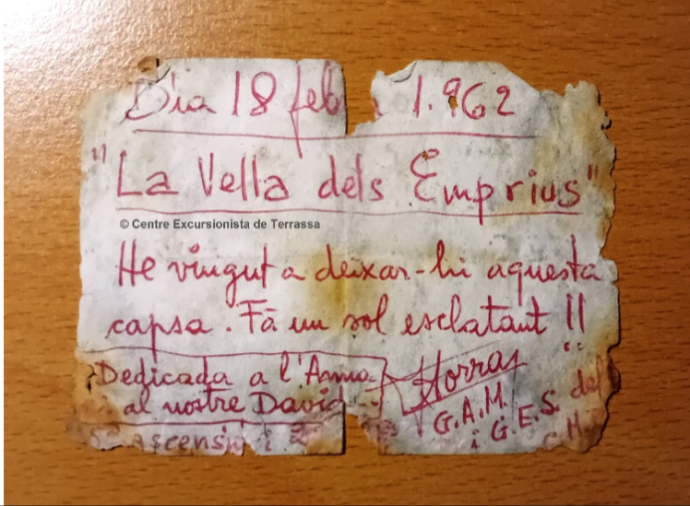 Dia 18 feb 1.962
"La Vella dels Emprius"
© Centre Excursionista de Terrassa
He vingut a deixar-hi aquesta
capsa. Fà un sol esclatant !!
Dedicada a l'Anna
al nostre David
ascensi
Torras
G.A.M.
i G.E.S. del